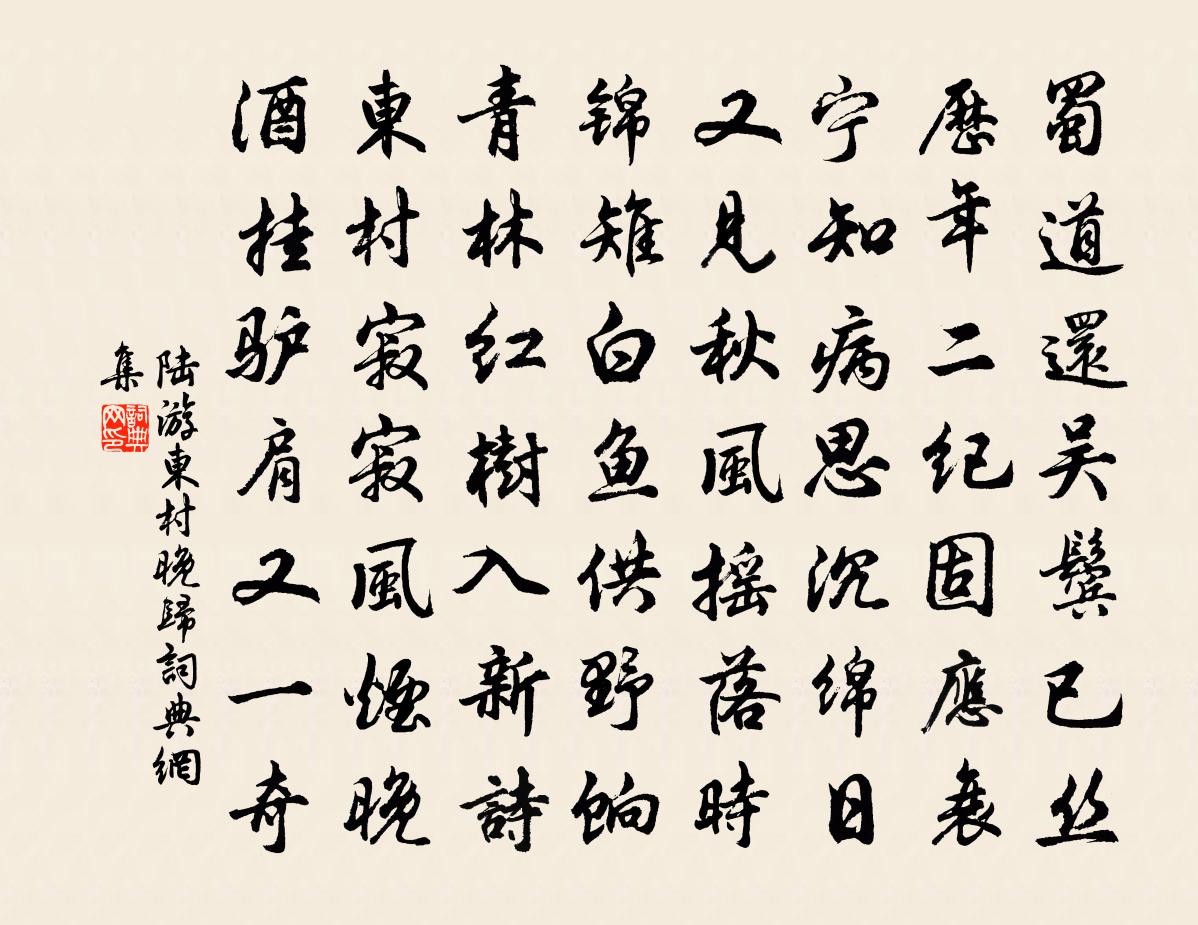 蜀道還吴鬓已丝
歷年二纪固應衰
宁知病思沉绵日
又見秋風摇落時
锦雉白鱼供野饷
青林红樹入新詩
東村寂寂風煙晚
酒挂驴肩又一奇
陆游東村晚歸詞典網
集
詞典
网印